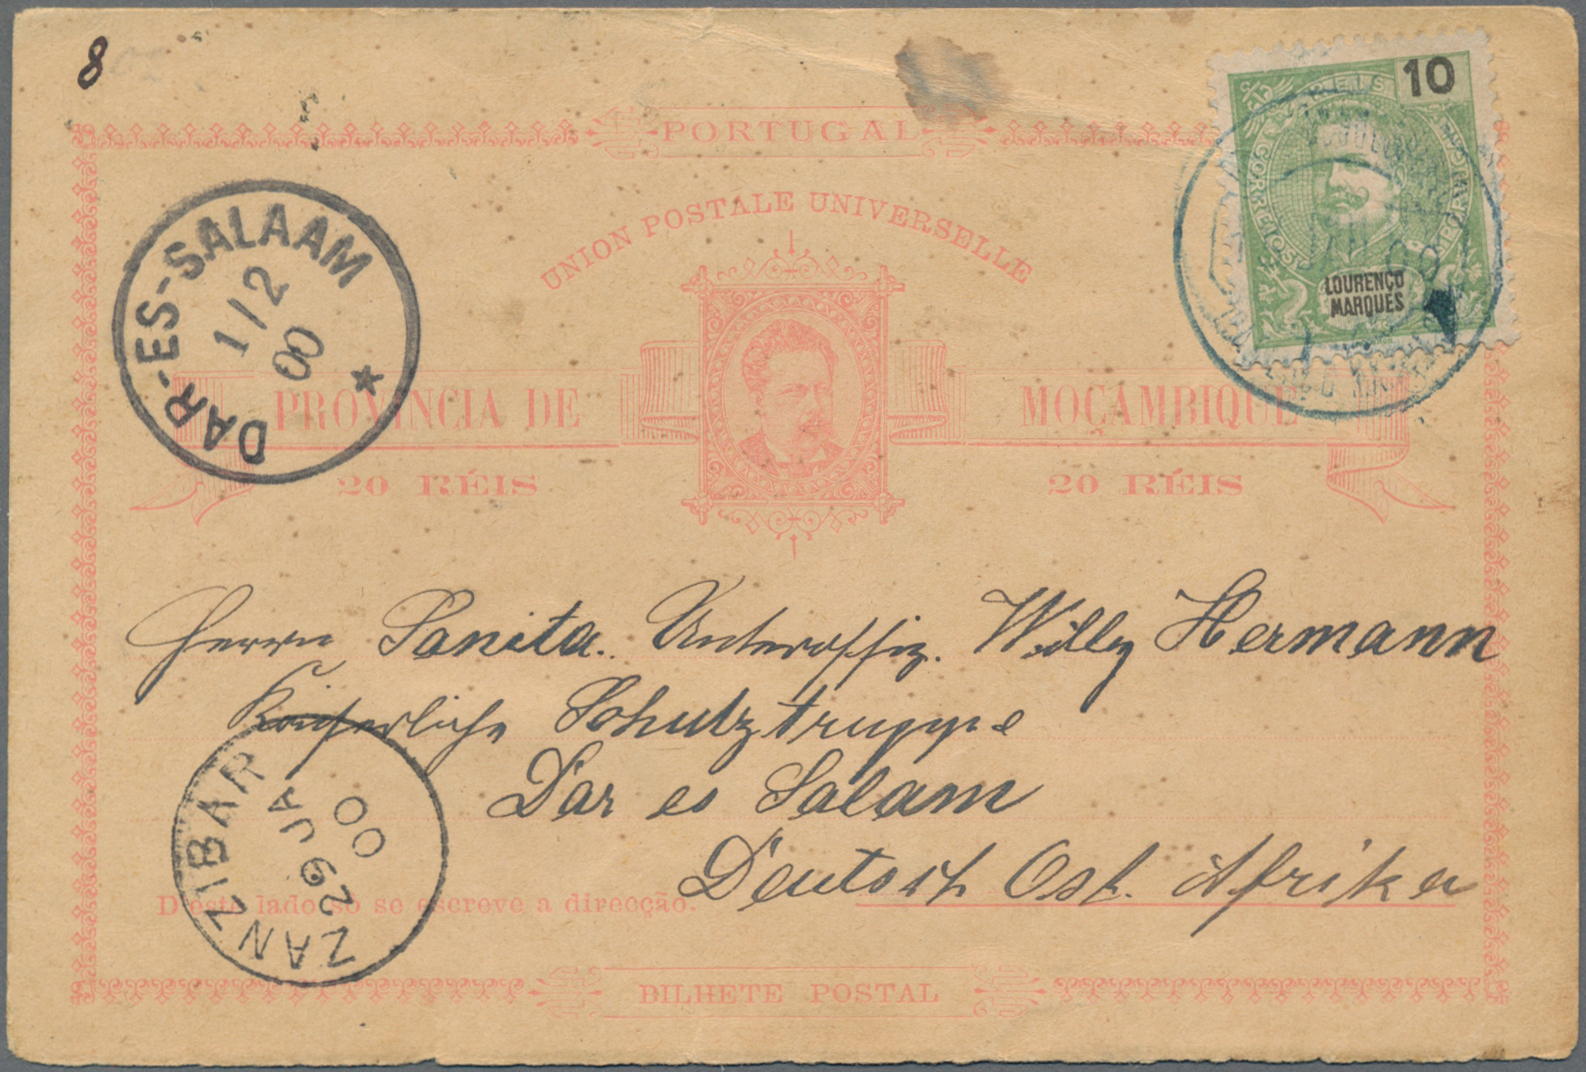 8
PORTUGAL
UNION POSTALE UNIVERSELLE
10
CORREIOS
LOURENÇO
MARQUES
DAR-ES-SALAAM
1/2
00
PROVINCIA DE MOÇAMBIQUE
20 RÉIS 20 RÉIS
Herrn Sanita. Unteroffiz. Willy Hermann
Kaiserliche Schutztruppe
Dar es Salam
Deutsch Ost. Afrika
ZANZIBAR
29 JA
00
D'este lado só se escreve a direcção.
BILHETE POSTAL